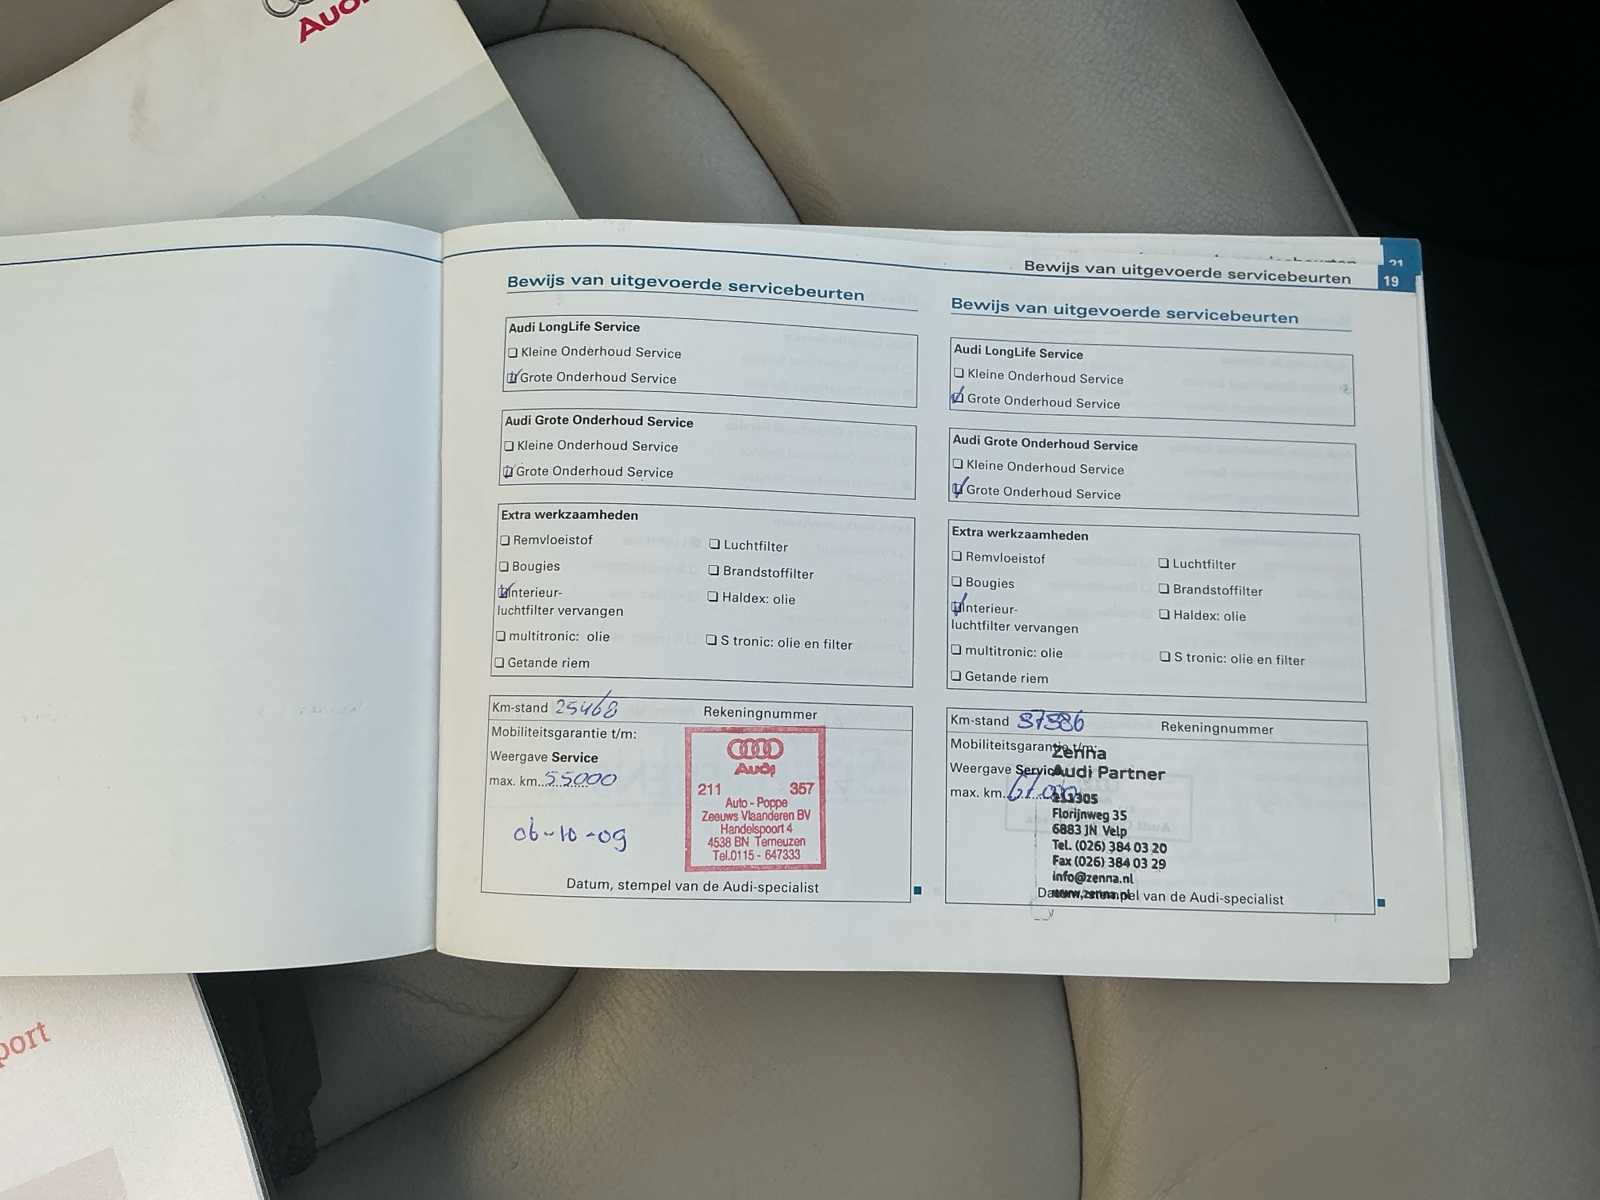 Audi
21
Bewijs van uitgevoerde servicebeurten 19
Bewijs van uitgevoerde servicebeurten
Audi LongLife Service
Kleine Onderhoud Service
Grote Onderhoud Service
Audi Grote Onderhoud Service
Kleine Onderhoud Service
Grote Onderhoud Service
Extra werkzaamheden
Remvloeistof
Luchtfilter
Bougies
Brandstoffilter
Interieur-
luchtfilter vervangen
Haldex: olie
multitronic: olie
S tronic: olie en filter
Getande riem
Km-stand 25468
Rekeningnummer
Mobiliteitsgarantie t/m:
Weergave Service
max. km. 55000
06-10-09
Audi
211 357
Auto - Poppe
Zeeuws Vlaanderen BV
Handelspoort 4
4538 BN Terneuzen
Tel.0115 - 647333
Datum, stempel van de Audi-specialist
Bewijs van uitgevoerde servicebeurten
Audi LongLife Service
Kleine Onderhoud Service
Grote Onderhoud Service
Audi Grote Onderhoud Service
Kleine Onderhoud Service
Grote Onderhoud Service
Extra werkzaamheden
Remvloeistof
Luchtfilter
Bougies
Brandstoffilter
Interieur-
luchtfilter vervangen
Haldex: olie
multitronic: olie
S tronic: olie en filter
Getande riem
Km-stand
Rekeningnummer
Mobiliteitsgarantie t/m:
Weergave Service
max. km.
Zenna
Audi Partner
211305
Florijnweg 35
6883 JN Velp
Tel. (026) 384 03 20
Fax (026) 384 03 29
info@zenna.nl
www.zenna.nl
Datum, stempel van de Audi-specialist
port